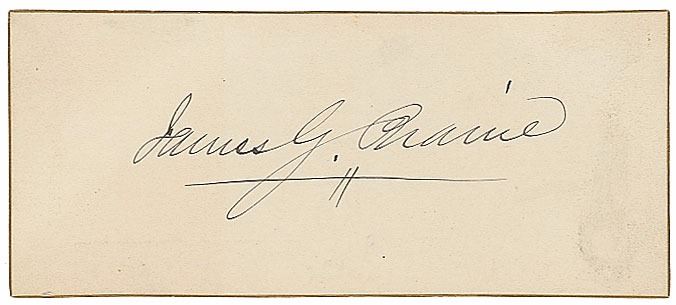 James G. Craine